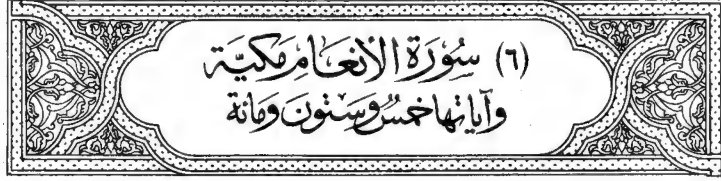 (٦) سُورَة الأنعَامِ مَكيَّة
وآياتها خمسٌ وَسِتونَ وَمائة